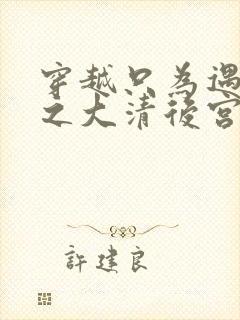 穿越只為遇
之大清後宮
許建良